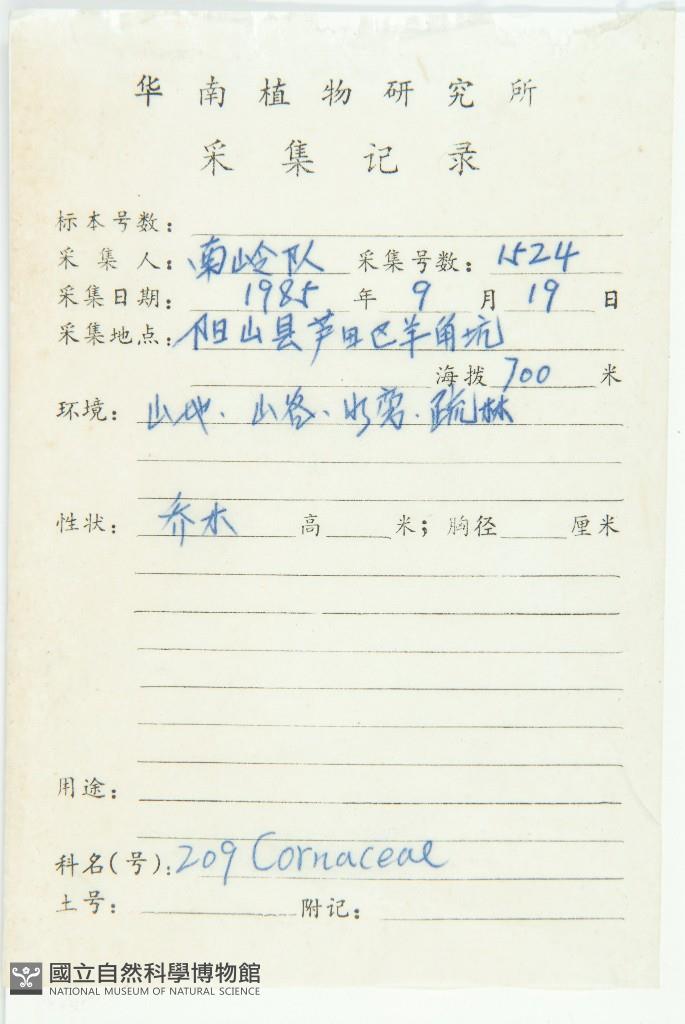 华南植物研究所
采集记录
标本号数：
采集人：南岭队 采集号数：1524
采集日期：1985年9月19日
采集地点：阳山县芦田区羊角坑
海拨700米
环境：山地、山谷、水旁、疏林
性状：乔木 高 米；胸径 厘米
用途：
科名(号)：209 Cornaceae
土号： 附记：
國立自然科學博物館
NATIONAL MUSEUM OF NATURAL SCIENCE